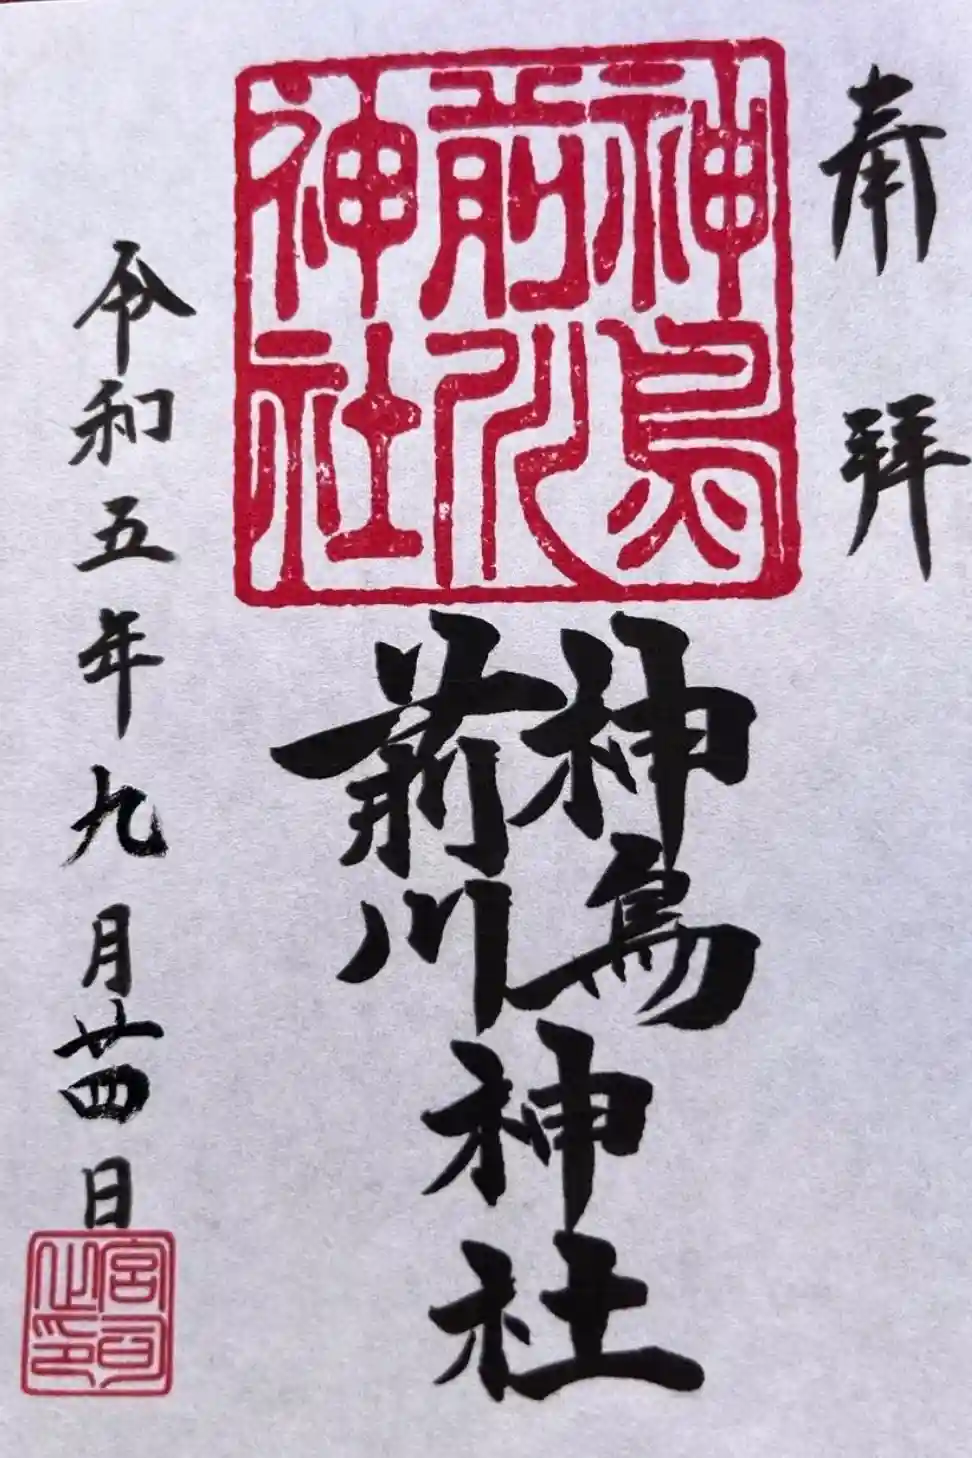 奉拝
神鳥
前川
神社
神鳥
前川
神社
令和五年九月廿四日
宮司
之印